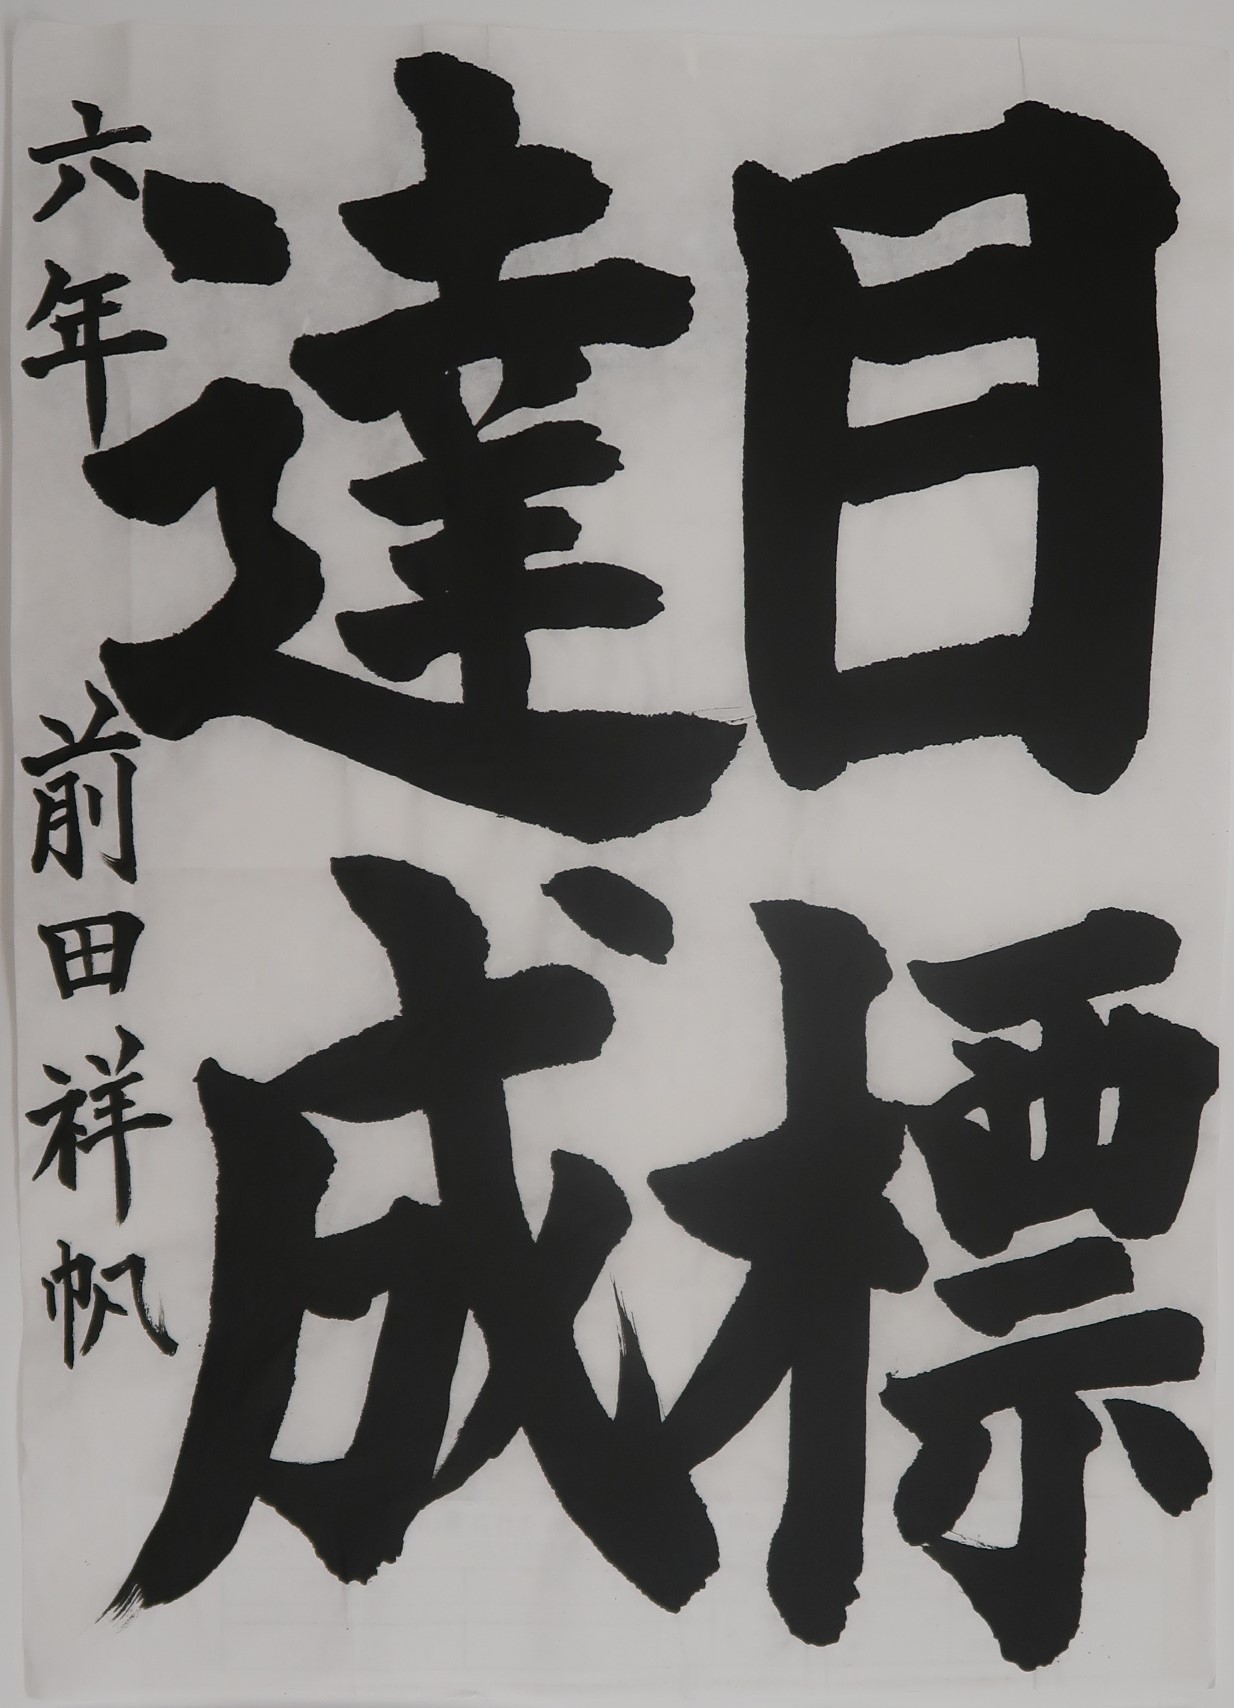 目標
達成
六年 前田祥帆